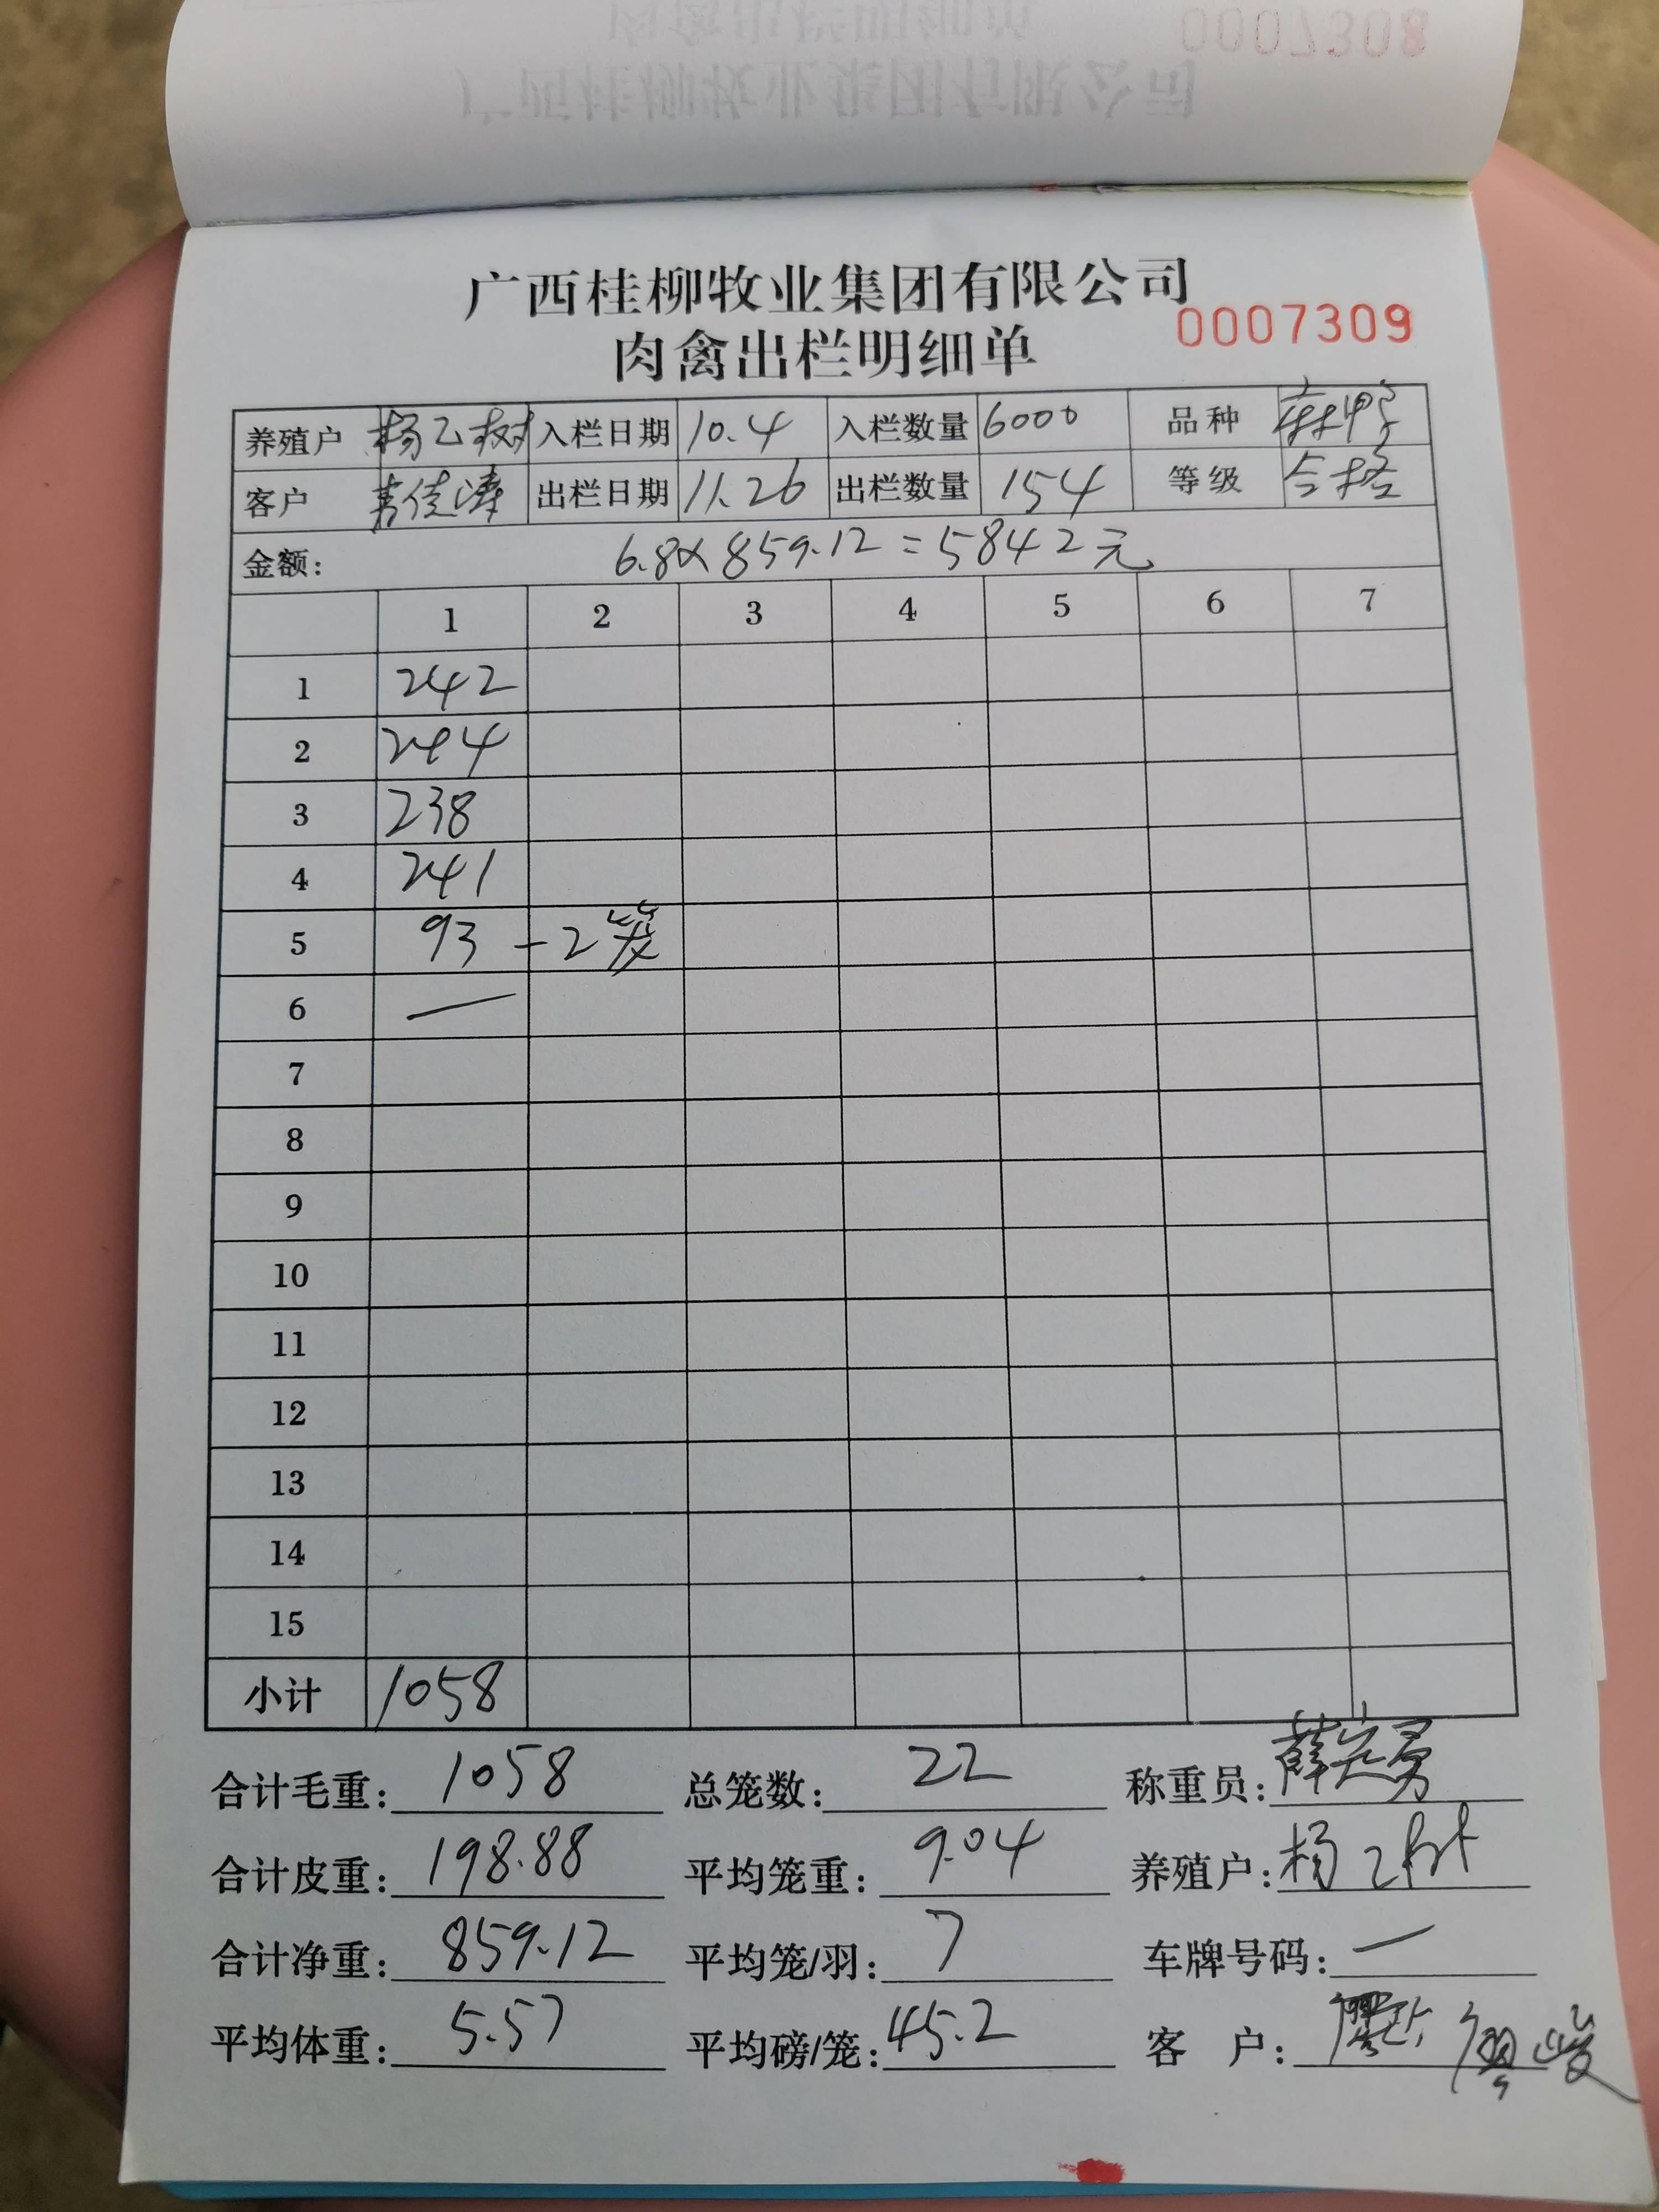 广西桂柳牧业集团有限公司
0007309
肉禽出栏明细单
养殖户 杨乙树 入栏日期 10.4 入栏数量 6000 品种 麻鸭
客户 出栏日期 11.26 出栏数量 154 等级 合格
金额: 6.8×859.12=5842元
1 2 3 4 5 6 7
1 242
2 244
3 238
4 241
5 93 - 2笼
6 —
7
8
9
10
11
12
13
14
15
小计 1058
合计毛重: 1058 总笼数: 22 称重员:
合计皮重: 198.88 平均笼重: 9.04 养殖户: 杨乙树
合计净重: 859.12 平均笼/羽: 7 车牌号码: —
平均体重: 5.57 平均磅/笼: 45.2 客 户: